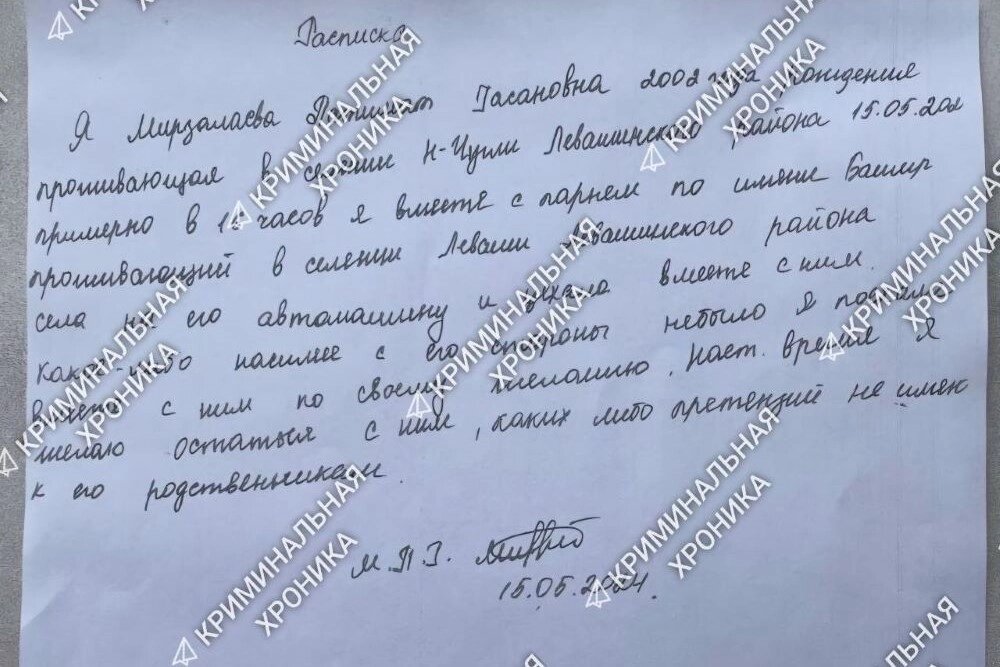 Расписка
Я Мирзалаева Гасановна 2002 года рождения
проживающая в селении Н-Цугли Левашинского района 15.05.202
примерно в часов я вместе с парнем по имени Башир
проживающий в селении Леваши Левашинского района
села на его автомашину и уехала вместе с ним.
Какое-либо насилие с его стороны небыло я поехала
вместе с ним по своему желанию. Наст. время я
желаю остаться с ним, каких либо претензий не имею
к его родственникам.
М.П.Г.
15.05.2024.
КРИМИНАЛЬНАЯ
ХРОНИКА
КРИМИНАЛЬНАЯ
ХРОНИКА
КРИМИНАЛЬНАЯ
ХРОНИКА
КРИМИНАЛЬНАЯ
ХРОНИКА
КРИМИНАЛЬНАЯ
ХРОНИКА
КРИМИНАЛЬНАЯ
ХРОНИКА
КРИМИНАЛЬНАЯ
ХРОНИКА
КРИМИНАЛЬНАЯ
ХРОНИКА